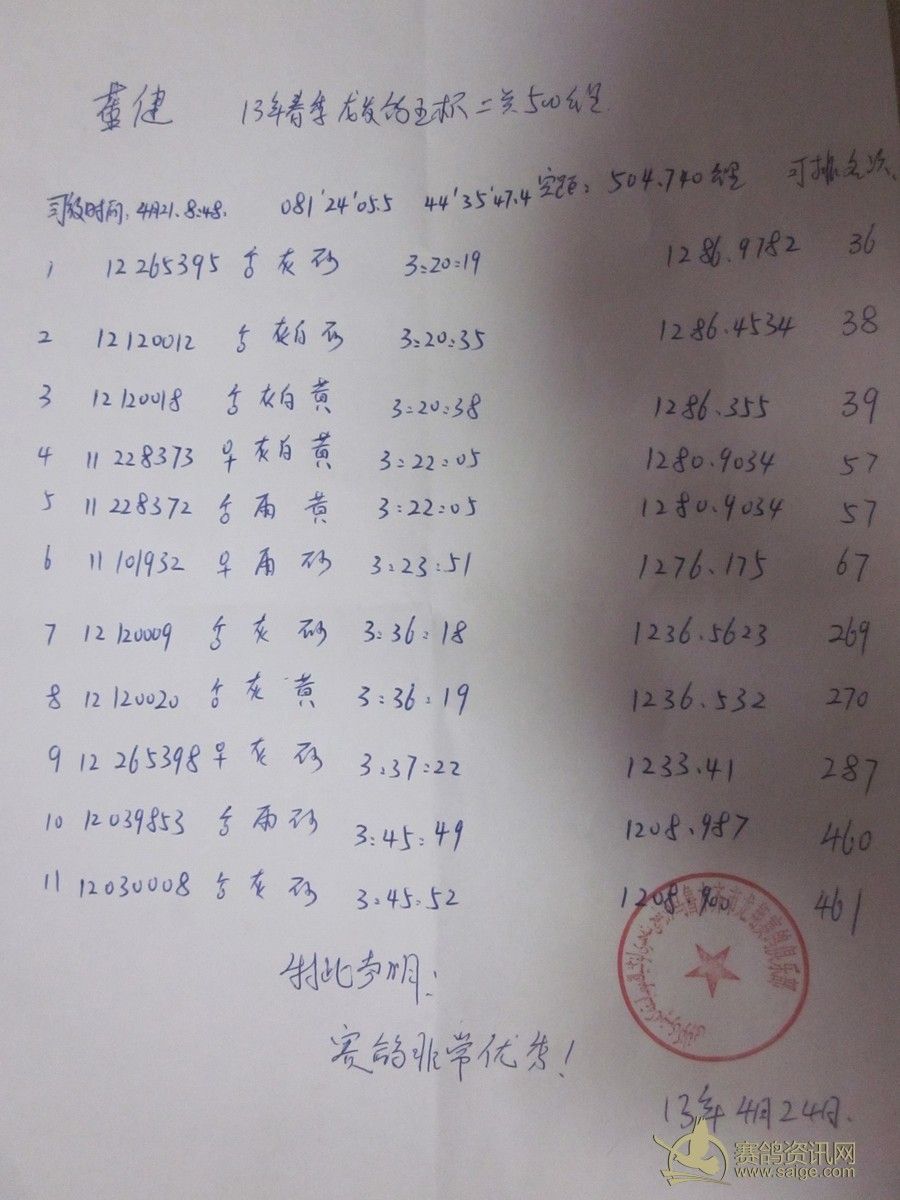 董健 13年春季龙发鸽王杯二关500公里
司放时间:4月21.8:48. 081'24'05.5 44'35'47.4 空距: 504.740公里 可排名次.
1 12 265395 灰砂 3:20:19 1286.9782 36
2 12120012 灰白砂 3:20:35 1286.4534 38
3 12120018 灰白黄 3:20:38 1286.355 39
4 11 228373 ♀ 灰白黄 3:22:05 1280.9034 57
5 11 228372 雨黄 3:22:05 1280.9034 57
6 11 101932 ♀ 雨砂 3:23:51 1276.175 67
7 12120009 灰砂 3:36:18 1236.5623 269
8 12120020 灰黄 3:36:19 1236.532 270
9 12 265398 ♀ 灰砂 3:37:22 1233.41 287
10 12039853 雨砂 3:45:49 1208.987 460
11 12030008 灰砂 3:45:52 1208.900 461
特此声明:
赛鸽非常优秀!
13年4月24日.
赛鸽资讯网
www.saige.com